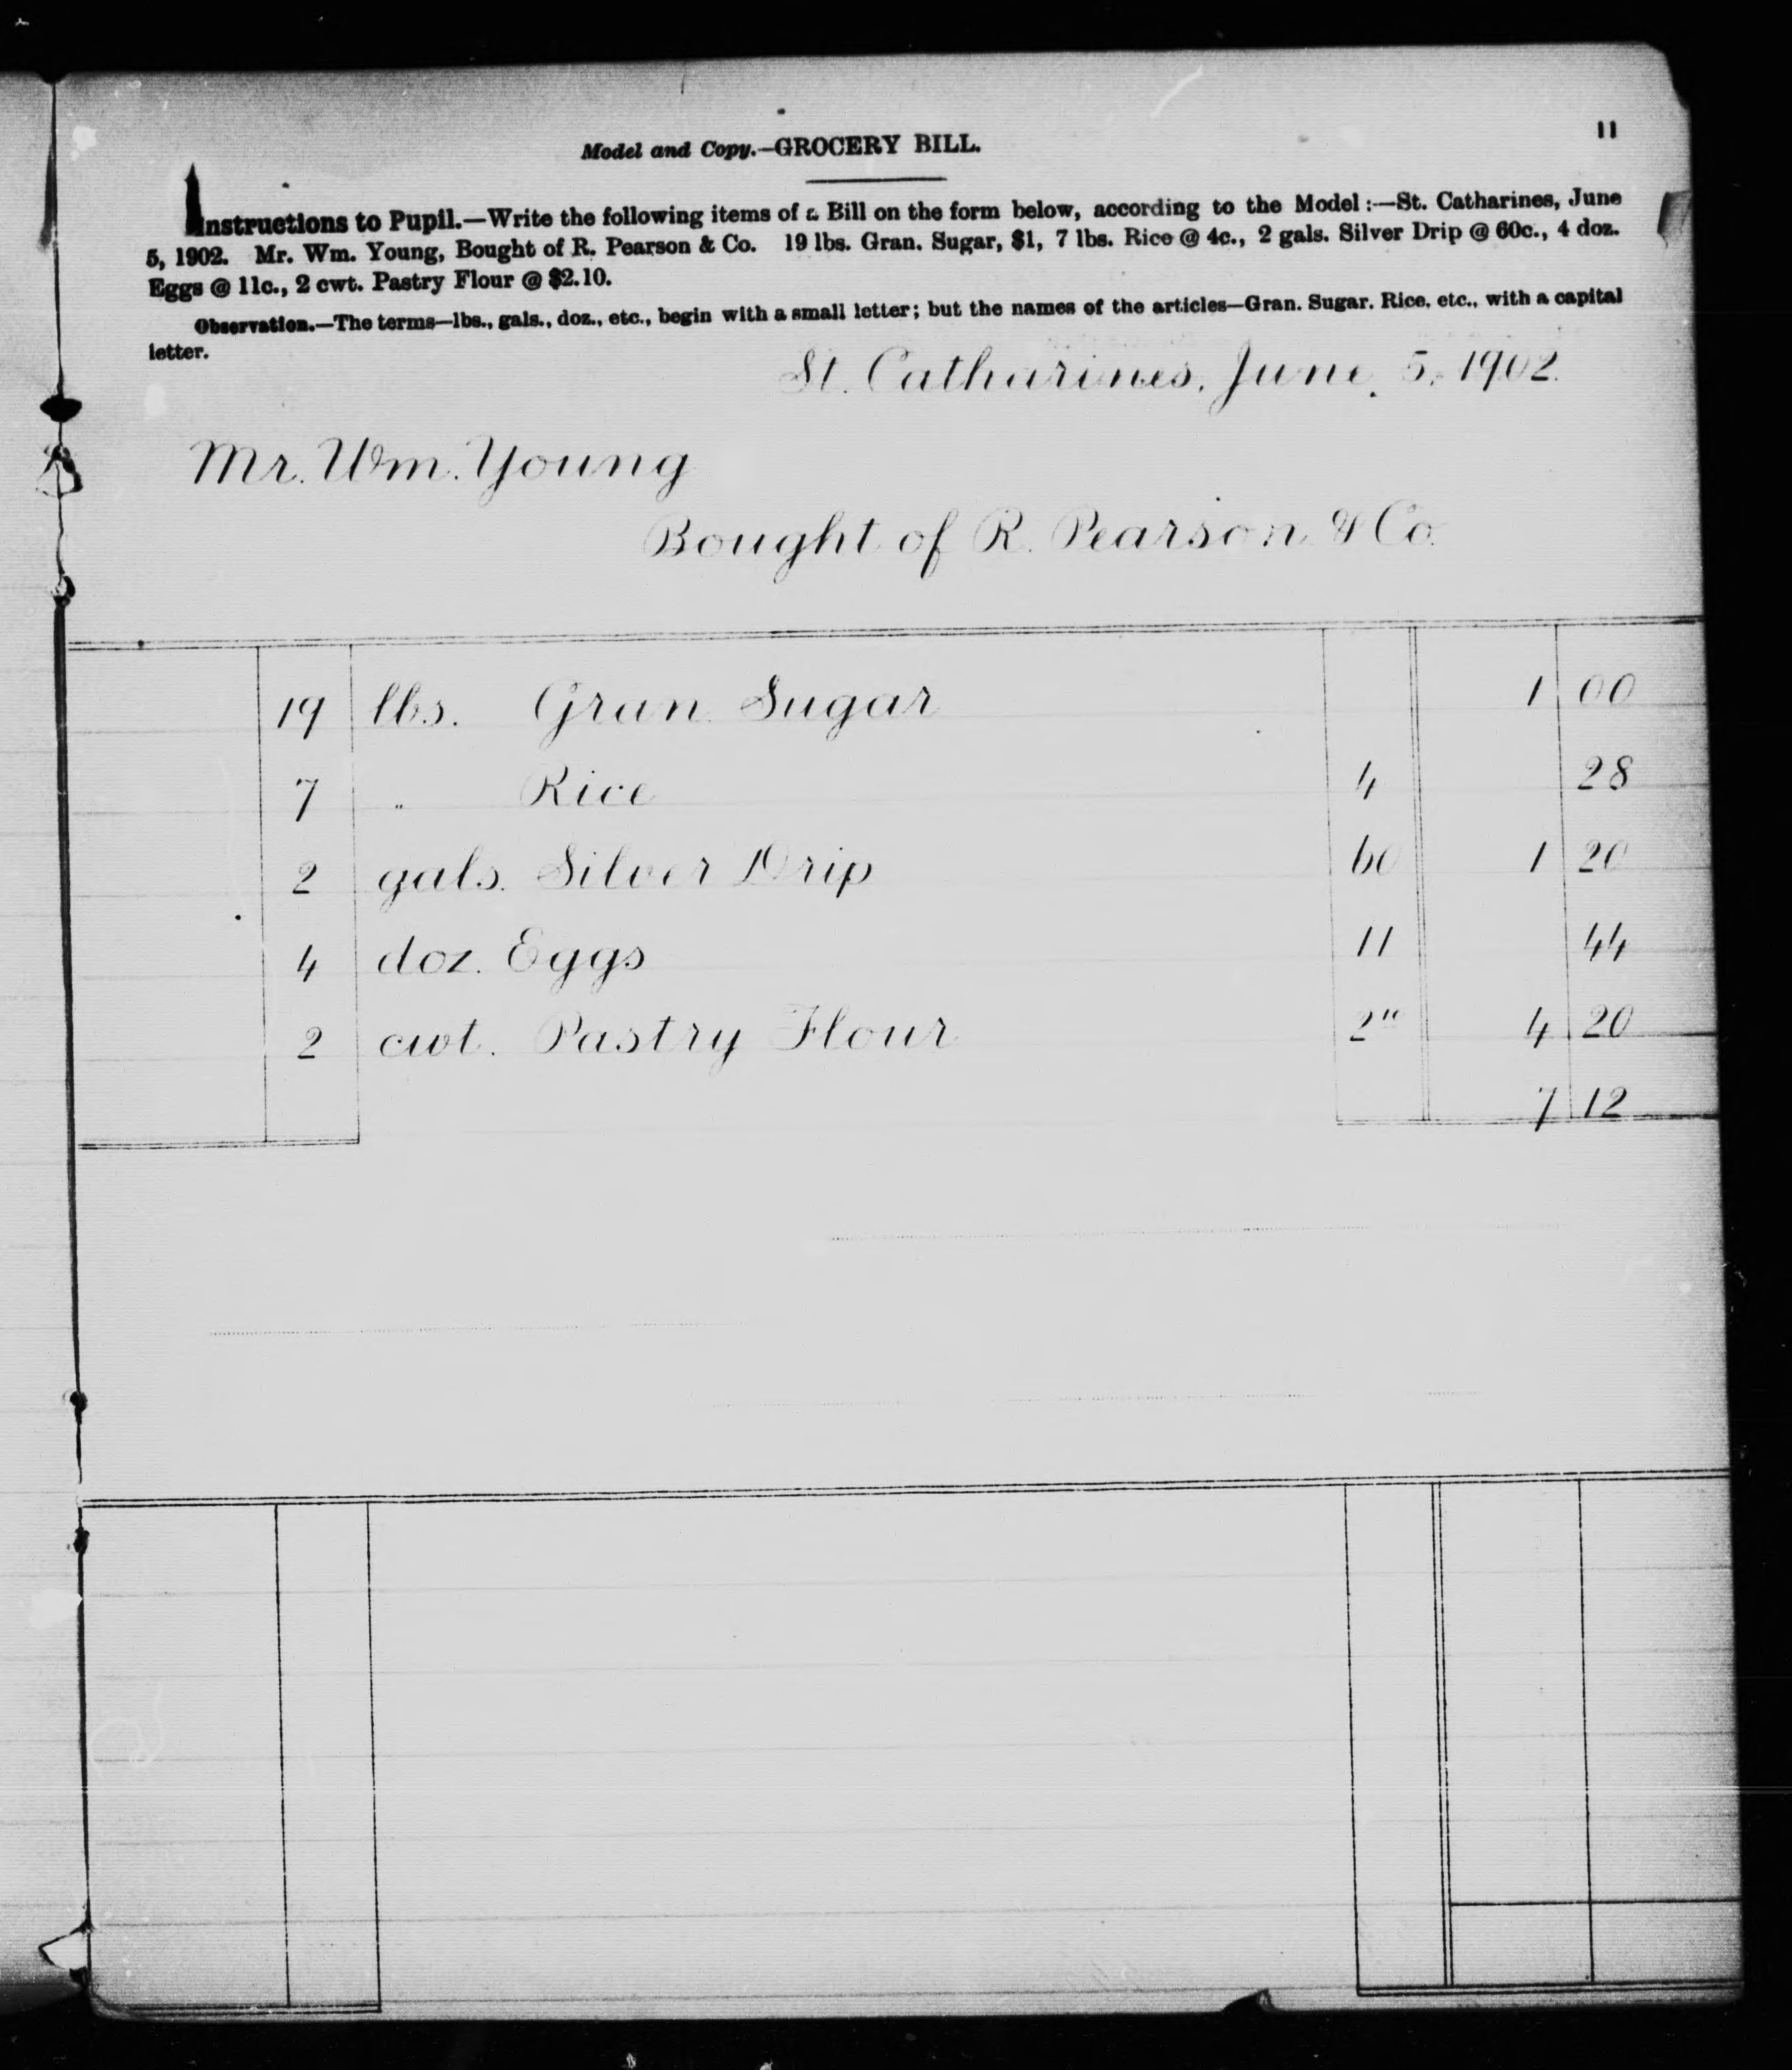 Model and Copy.—GROCERY BILL.
11
Instructions to Pupil.—Write the following items of a Bill on the form below, according to the Model:—St. Catharines, June
5, 1902. Mr. Wm. Young, Bought of R. Pearson & Co. 19 lbs. Gran. Sugar, $1, 7 lbs. Rice @ 4c., 2 gals. Silver Drip @ 60c., 4 doz.
Eggs @ 11c., 2 cwt. Pastry Flour @ $2.10.
Observation.—The terms—lbs., gals., doz., etc., begin with a small letter; but the names of the articles—Gran. Sugar. Rice, etc., with a capital
letter.
St. Catharines, June, 5, 1902.
Mr. Wm. Young
Bought of R. Pearson & Co.
19 lbs. Gran. Sugar 1 00
7 " Rice 4 28
2 gals. Silver Drip 60 1 20
4 doz. Eggs 11 44
2 cwt. Pastry Flour 2 10 4 20
7 12